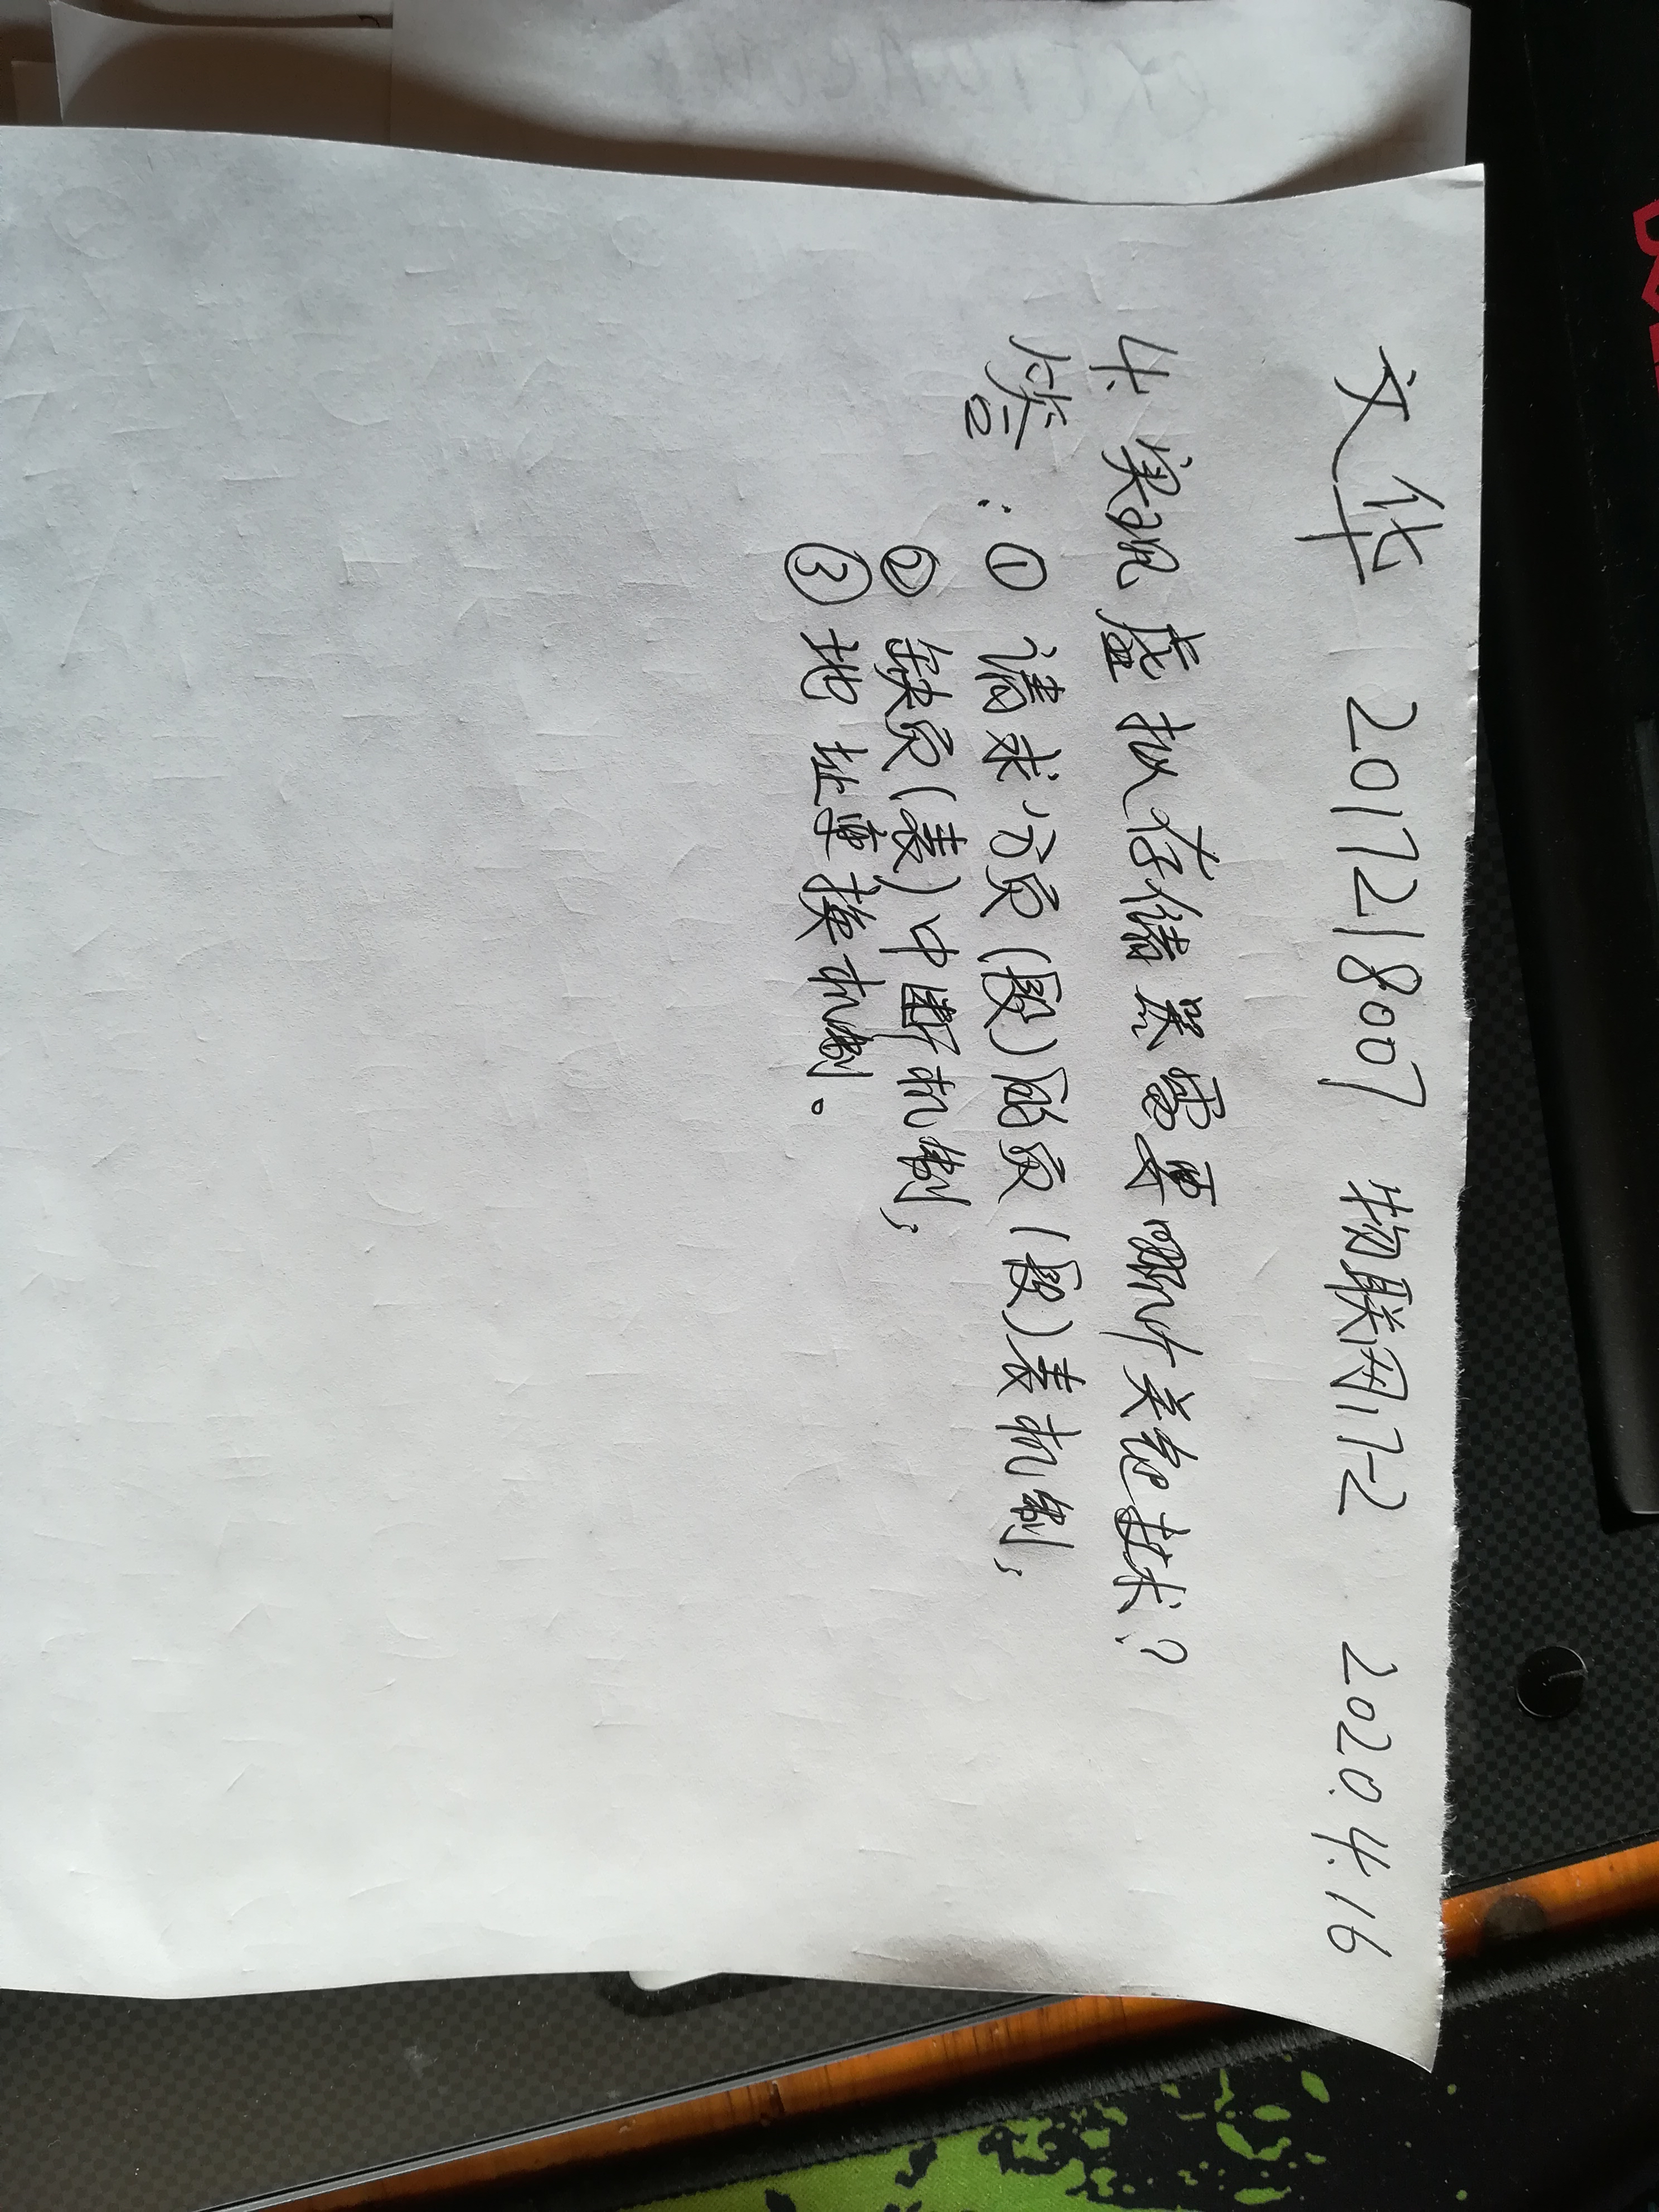 文华 2017218007 物联网17-2 2020.4.16
4.实现虚拟存储器需要哪几个关键技术?
答:① 请求分页(段)的页(段)表机制;
② 缺页(表)中断机制;
③ 地址变换机制。